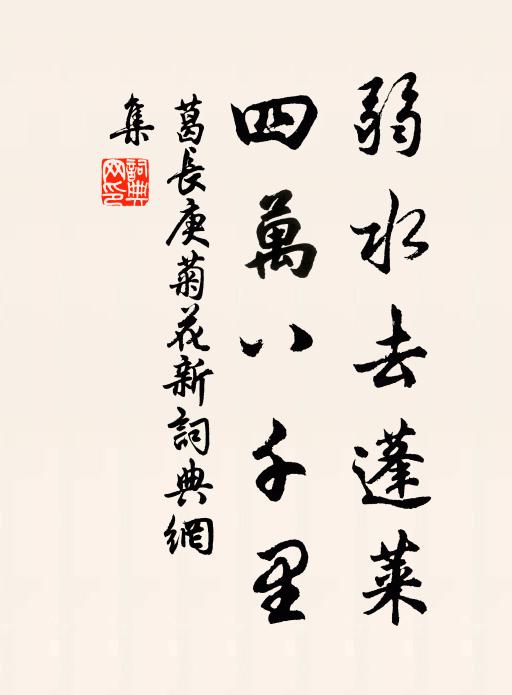 弱水去蓬萊
四萬八千里
葛長庚菊花新詞典網
集
詞典網印